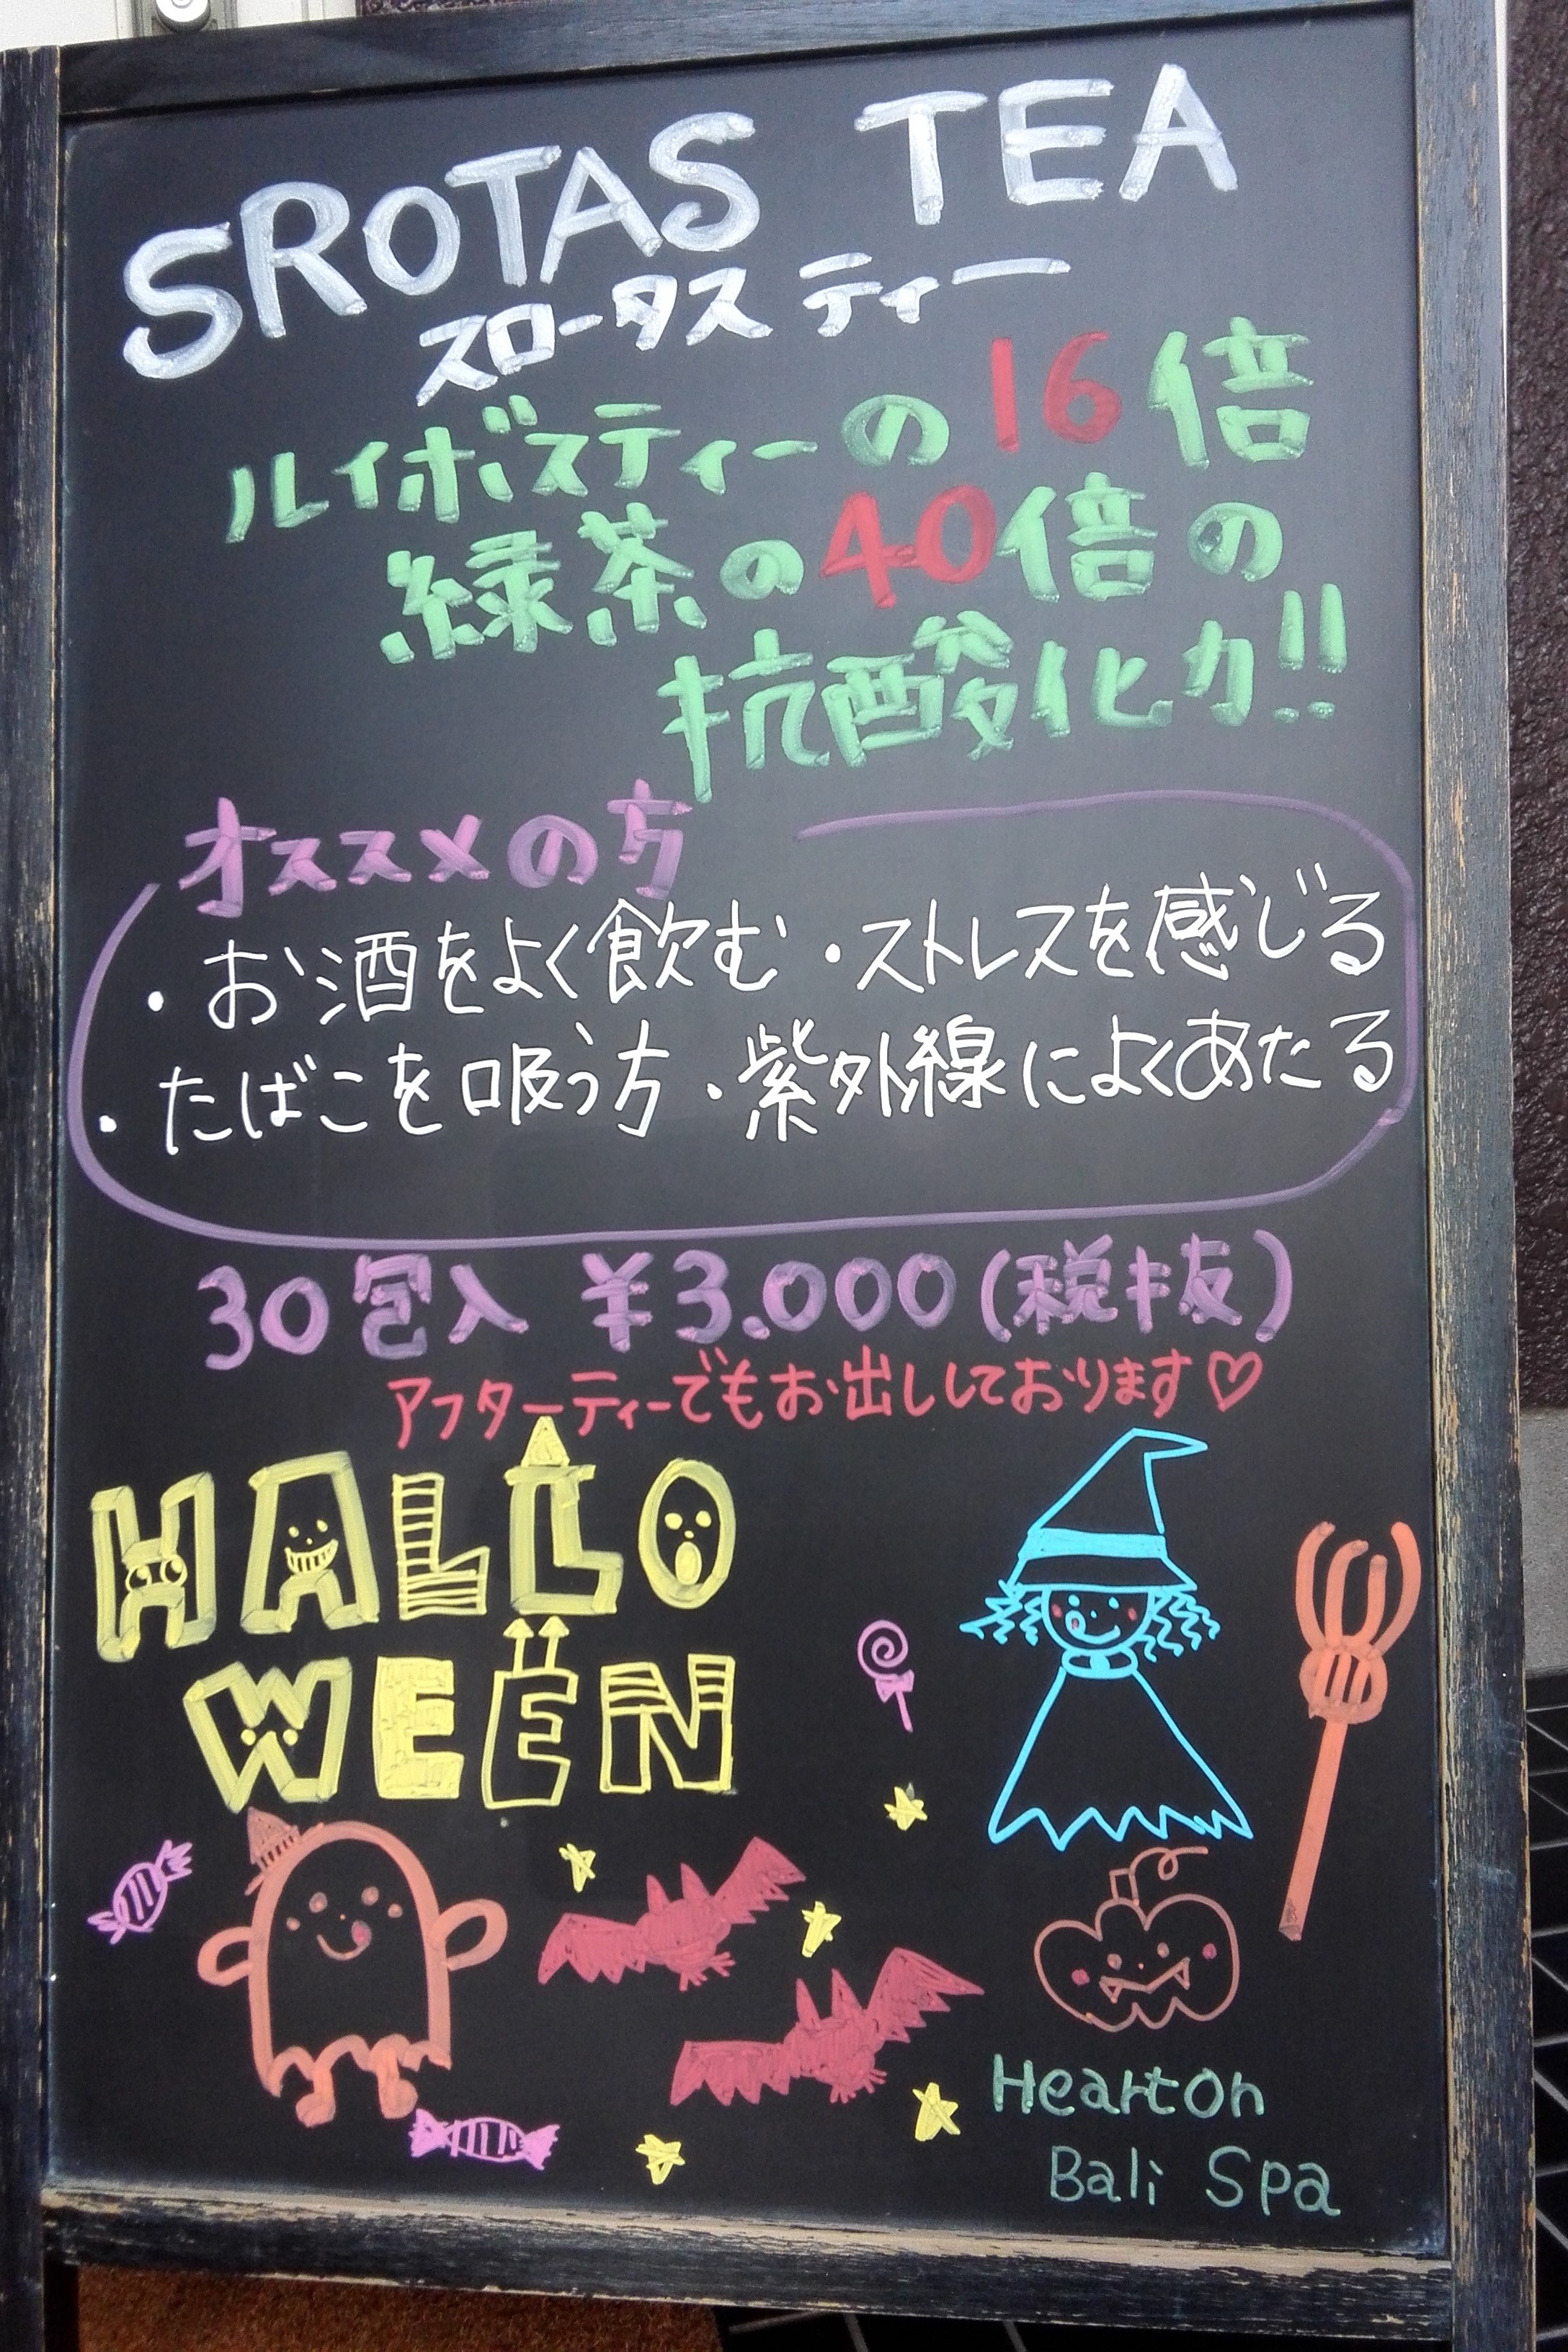 SROTAS TEA
スロータス ティー
ルイボスティーの16倍
緑茶の40倍の
抗酸化力!!
オススメの方
・お酒をよく飲む ・ストレスを感じる
・たばこを吸う方 ・紫外線によくあたる
30包入 ¥3.000(税抜)
アフターティーでもお出ししております♡
HALLO
WEEN
Hearton
Bali Spa